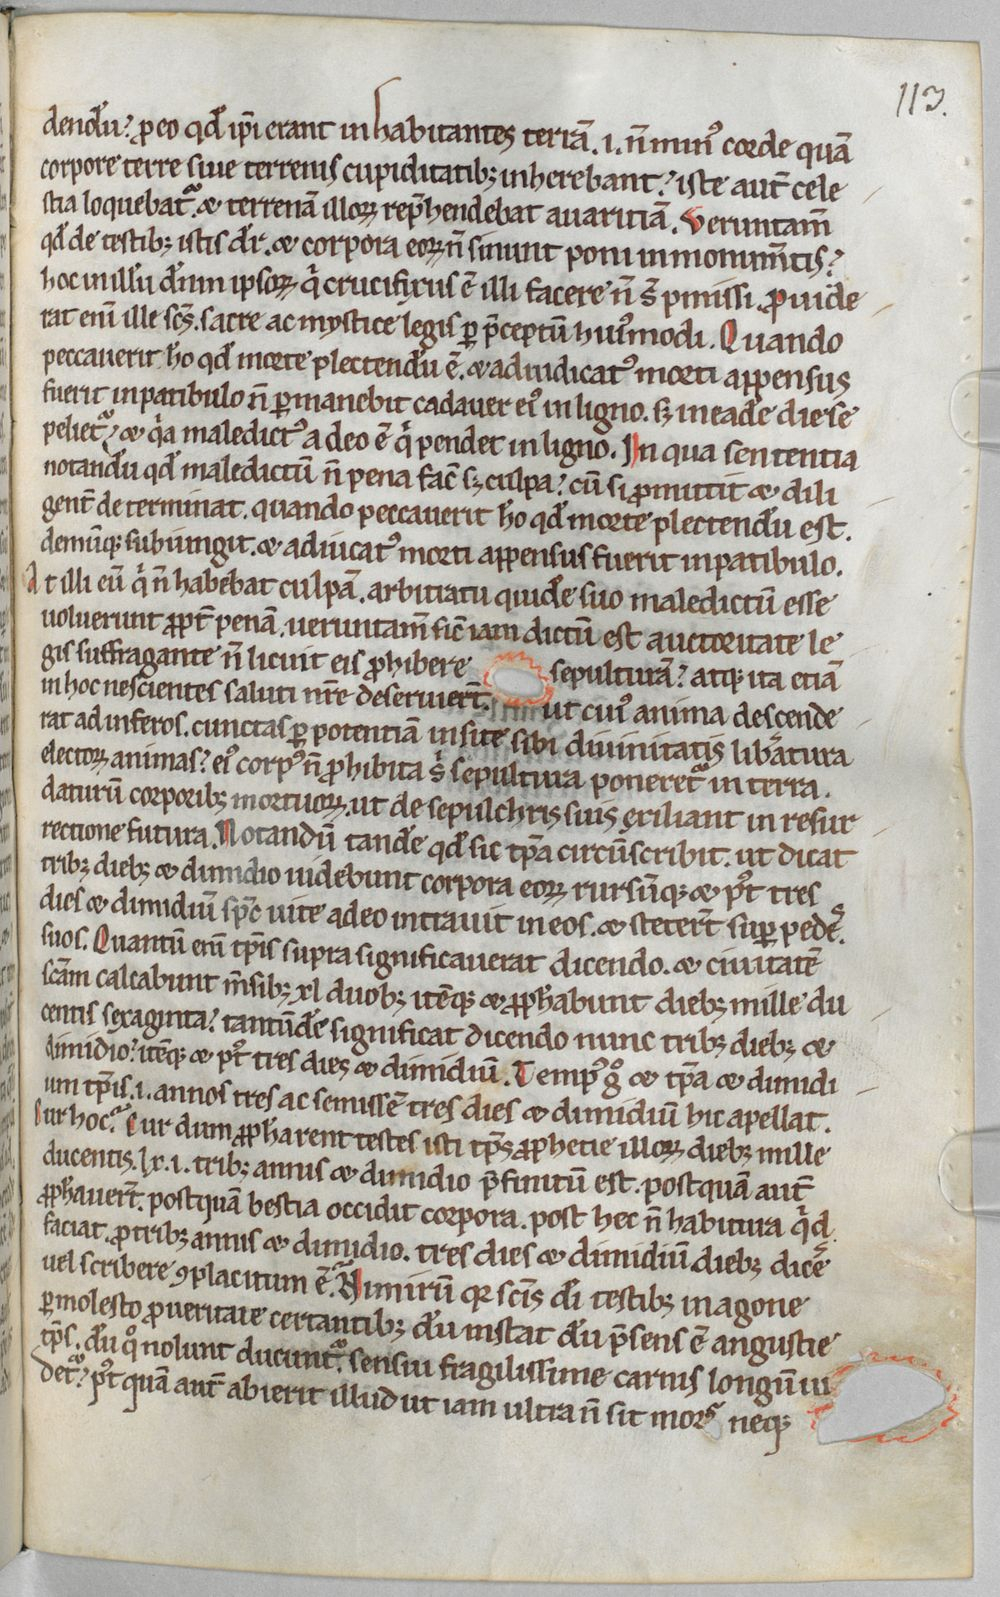 113.
dendū? ꝓ eo qđ ip̄i erant inhabitantes terrā .i. n̄ minꝰ corde quā
corpore terre siue terrenis cupiditatibꝫ inherebant? iste aut̄ cele
stia loquebat᷑. ⁊ terrenā illoꝝ rep̄hendebat auaritiā. Veruntam̄
qđ de testibꝫ istis dr̄. ⁊ corpora eoꝝ n̄ sinunt poni in monum̄tis?
hoc in illū dn̄m ipsoꝝ q̇ crucifixus ē illi facere n̄ s̄ pmissi. Ꝓuide
rat eni᷑ ille scs̄. sacre ac mystice legis ꝑ p̄ceptū huiꝰmodi. Quando
peccauerit hō qđ morte plectendū ē. ⁊ adiudicatꝰ morti appensus
fuerit in patibulo n̄ ꝑmanebit cadauer eiꝰ in ligno. sꝫ in eadē die se
peliet᷑? ⁊ q̇a maledictꝰ a deo ē q̇ pendet in ligno. In qua sententia
notandū qđ maledictū n̄ pena fac̄ sꝫ culpa? cū si ꝓmittit ⁊ dili
gent̄ determinat. quando peccauerit hō qđ morte plectendū est.
demūqꝫ subiungit. ⁊ adiucatꝰ morti appensus fuerit in patibulo.
At illi eū q̇ n̄ habebat culpā. arbitratu quidē suo maledictū esse
uoluerunt ꝓpt̄ penā. ueruntam̄ sic̄ iam dictū est auctoritate le
gis suffragante n̄ licuit eis ꝓhibere sepulturā? atqꝫ ita etiā
in hoc nescientes saluti nr̄e deseruier̄t. ut cuiꝰ anima descende
rat ad inferos. cunctas ꝑ potentiā insite sibi diuinitatis lib̄atura
electoꝝ animas? eiꝰ corpꝰ n̄ ꝓhibita s̄ sepultura poneret᷑ in terra.
daturū corporibꝫ mortuoꝝ. ut de sepulchris suis exiliant in resur
rectione futura. Notandū tandē qđ sic tp̄a circūscribit. ut dicat
tribꝫ diebꝫ ⁊ dimidio uidebunt corpora eoꝝ rursūqꝫ ⁊ pꝰt tres
dies ⁊ dimidiū sp̄c uite a deo intrauit in eos. ⁊ steter̄t suꝑ pedes̄
suos. Quantū eni᷑ tp̄is supra significauerat dicendo. ⁊ ciuitatē
scām calcabunt m̄sibꝫ xl duobꝫ itēqꝫ ⁊ ꝓphabunt diebꝫ mille du
centis sexaginta? tantūdē significat dicendo nunc tribꝫ diebꝫ ⁊
dimidio? itēqꝫ ⁊ pꝰt tres dies ⁊ dimidiū. Tempꝰ gͦ ⁊ tp̄a ⁊ dimidi
um tp̄is .i. annos tres ac semissē tres dies ⁊ dimidiū hic apellat.
Cur hoc? Cur dum ꝓpharent testes isti tp̄s ꝓphetie illoꝝ diebꝫ mille
ducentis .lx.i. tribꝫ annis ⁊ dimidio p̄finitū est. postquā aut̄
ꝓphauer̄t. postquā bestia occidit corpora. post hec n̄ habitura q̇d
faciat. ꝓ tribꝫ annis ⁊ dimidio. tres dies ⁊ dimidiū diebꝫ dicē
uel scribere ꝯplacitum ē? Nimirū qꝛ scīs di᷑ testibꝫ in agone
ꝑmolesto ꝓ ueritate certantibꝫ dū instat dū p̄sens ē angustie
tp̄s. dū qͦ nolunt ducunt᷑. sensui fragilissime carnis longū ui
det᷑? pꝰt quā aut̄ abierit illud ut iam ultra n̄ sit mors neqꝫ